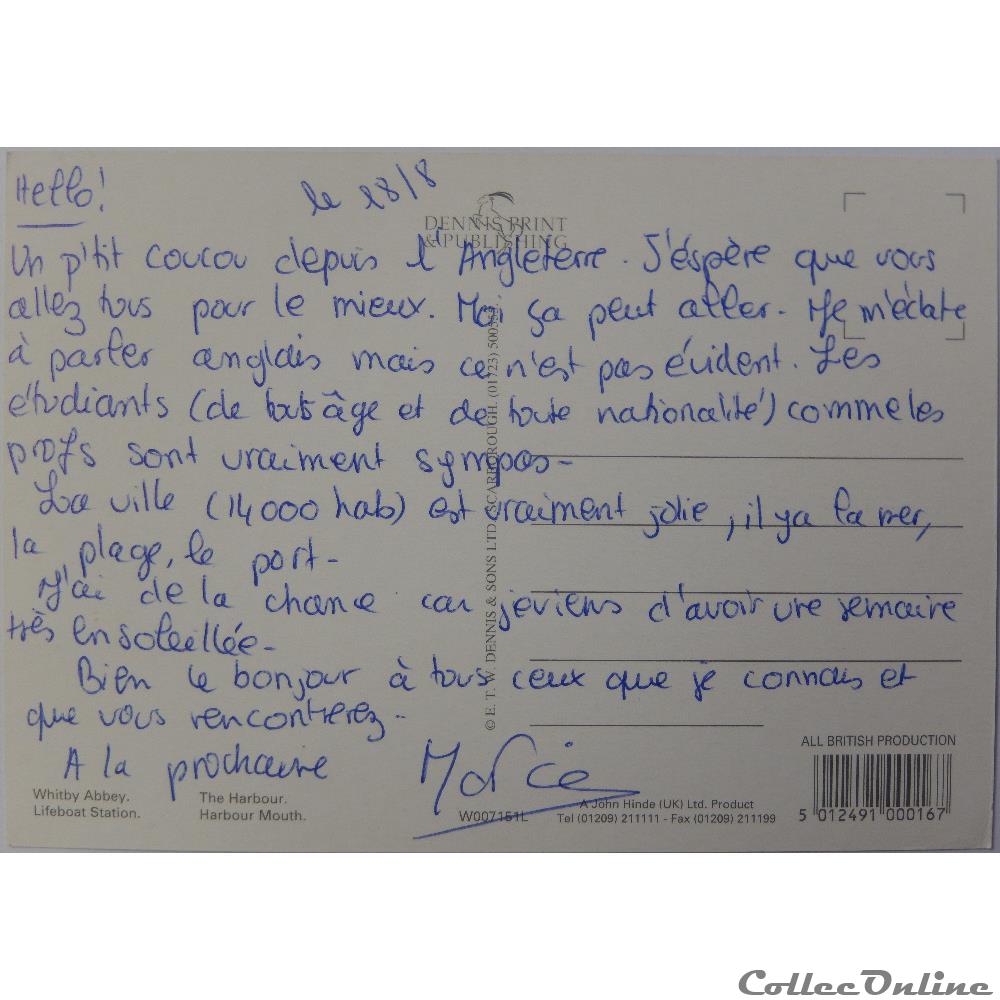 Hello!
le 28/8
DENNIS PRINT
& PUBLISHING
Un p'tit coucou depuis l'Angleterre. J'éspère que vous
allez tous pour le mieux. Moi ça peut aller. Je m'éclate
à parler anglais mais ce n'est pas évident. Les
étudiants (de tout âge et de toute nationalité) comme les
profs sont vraiment sympas-
La ville (14000 hab) est vraiment jolie, il y a la mer,
la plage, le port-
J'ai de la chance car je viens d'avoir une semaine
très ensoleillée-
Bien le bonjour à tous ceux que je connais et
que vous rencontrerez-
A la prochaine
© E. T. W. DENNIS & SONS LTD SCARBOROUGH. (01723)
ALL BRITISH PRODUCTION
Whitby Abbey. The Harbour.
Lifeboat Station. Harbour Mouth.
W007151L
A John Hinde (UK) Ltd. Product
Tel (01209) 211111 - Fax (01209) 211199
5 012491 000167
CollecOnline